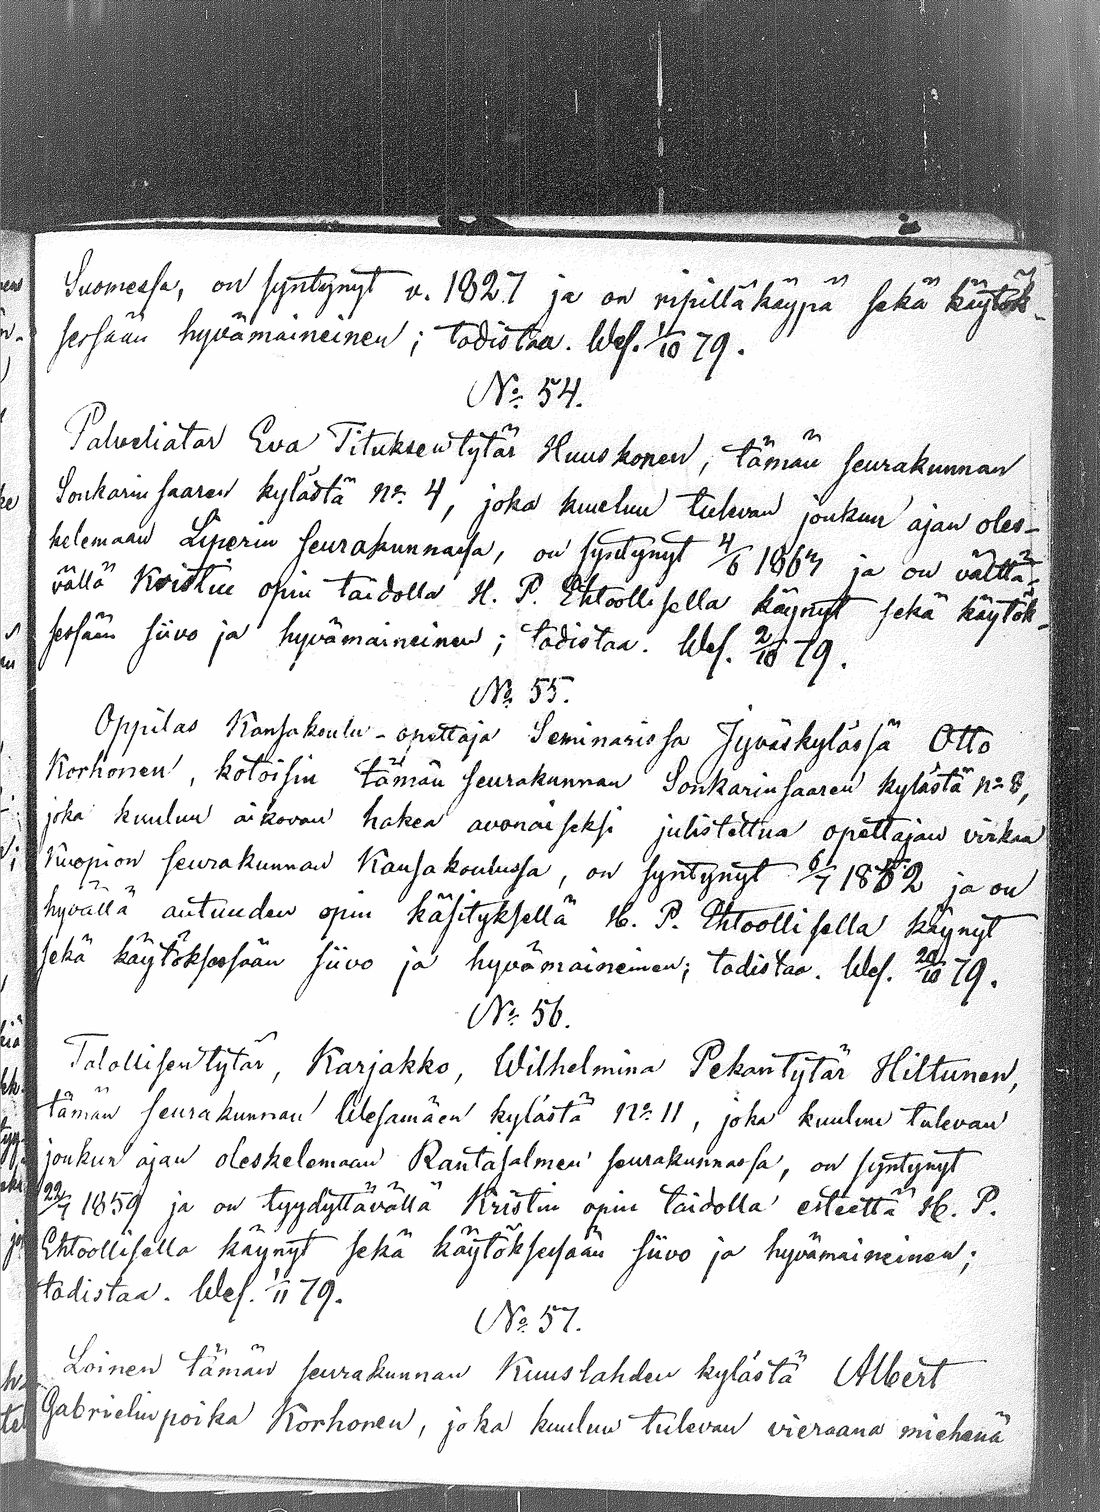 Suomessa, on syntynyt v. 1827 ja on ripilläkäypä sekä käytök-
sessään hyvämaineinen; todistaa. Wes. 1/10 79.
No. 54.
Palveliatar Eva Tituksentytär Huuskonen, tämän seurakunnan
Sonkarinsaaren kylästä No. 4, joka kuuluu tulevan joukun ajan oles-
kelemaan Liperin seurakunnassa, on syntynyt 4/6 1863 ja on välttä-
vällä Kristin opin taidolla H. P. Ehtoollisella käynyt sekä käytök-
sessään siivo ja hyvämaineinen; todistaa. Wes. 2/10 79.
No. 55.
Oppilas Kansakoulu-opettaja Seminarissa Jyväskylässä Otto
Korhonen, kotoisin tämän seurakunnan Sonkarinsaaren kylästä No 8,
joka kuuluu aikovan hakea avonaiseksi julistettua opettajan virkaa
Kuopion seurakunnan Kansakoulussa, on syntynyt 6/7 1852 ja on
hyvällä autuuden opin käsityksellä H. P. Ehtoollisella käynyt
sekä käytöksessään siivo ja hyvämaineinen; todistaa. Wes. 20/10 79.
No. 56.
Talollisentytär, Karjakko, Wilhelmina Pekantytär Hiltunen,
tämän seurakunnan Wesamäen kylästä No. 11, joka kuuluu tulevan
joukun ajan oleskelemaan Rantasalmen seurakunnassa, on syntynyt
22/7 1859 ja on tyydyttävällä Kristin opin taidolla esteettä H. P.
Ehtoollisella käynyt sekä käytöksessään siivo ja hyvämaineinen;
todistaa. Wes. 1/11 79.
No. 57.
Loinen tämän seurakunnan Kuuslahden kylästä Albert
Gabrielinpoika Korhonen, joka kuuluu tulevan vieraana miehenä